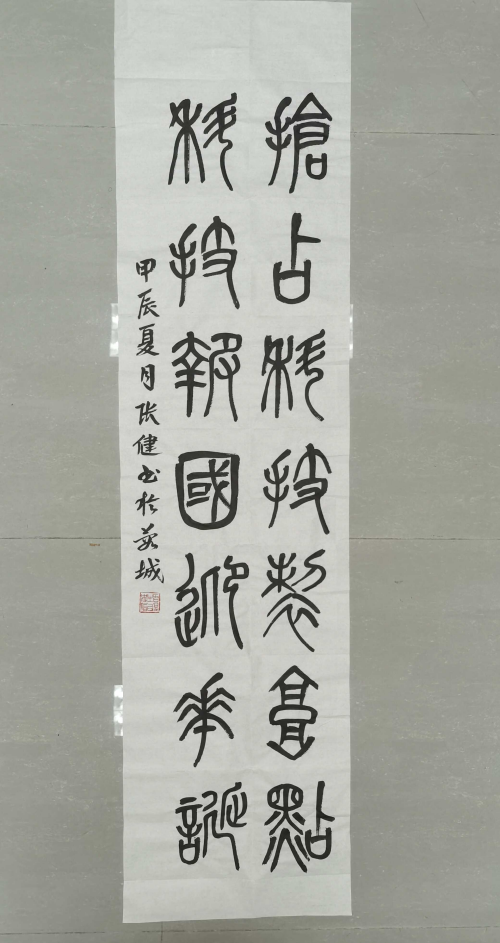 搶占科技制高點
科技報國迎華誕
甲辰夏月张健书於
城